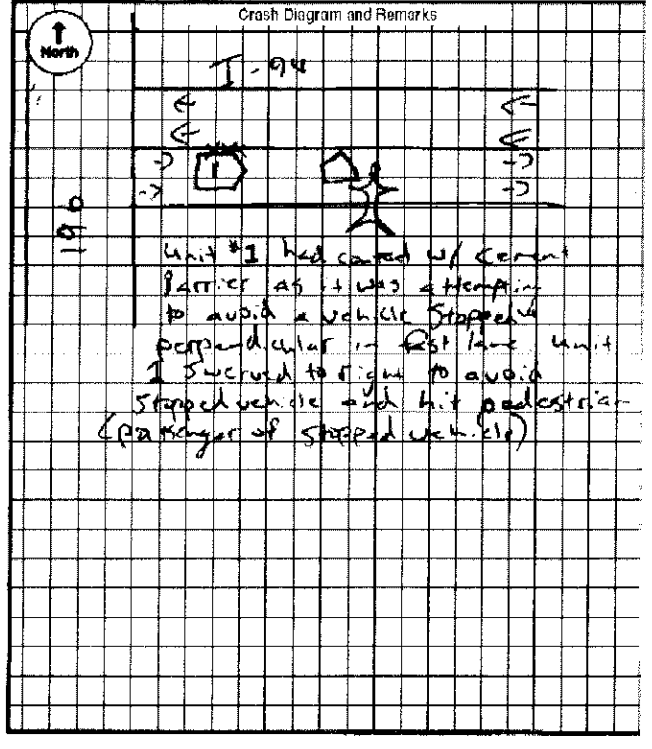 Crash Diagram and Remarks
North
I-94
1
190
Unit #1 had conted w/ cement
barrier as it was attempting
to avoid a vehicle stopped
perpendicular in fast lane. Unit
1 swerved to right to avoid
stopped vehicle and hit pedestrian
(passenger of stopped vehicle)